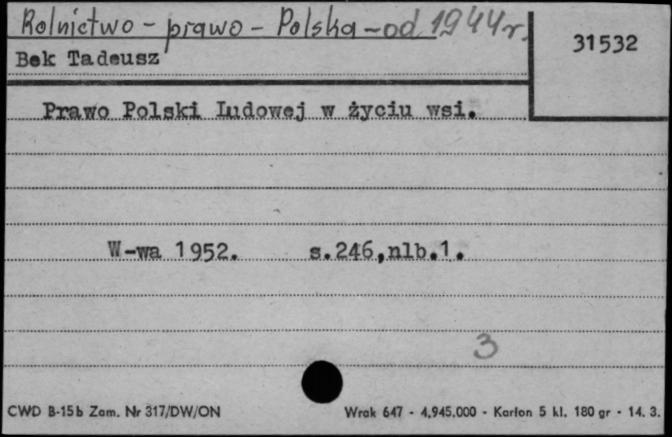 Rolnictwo - prawo - Polska - od 1944 r.
31532
Bek Tadeusz
Prawo Polski Ludowej w życiu wsi.
W-wa 1952. s.246,nlb.1.
3
CWD B-15b Zam. Nr 317/DW/ON Wrak 647 - 4,945.000 - Karton 5 kl. 180 gr - 14. 3.